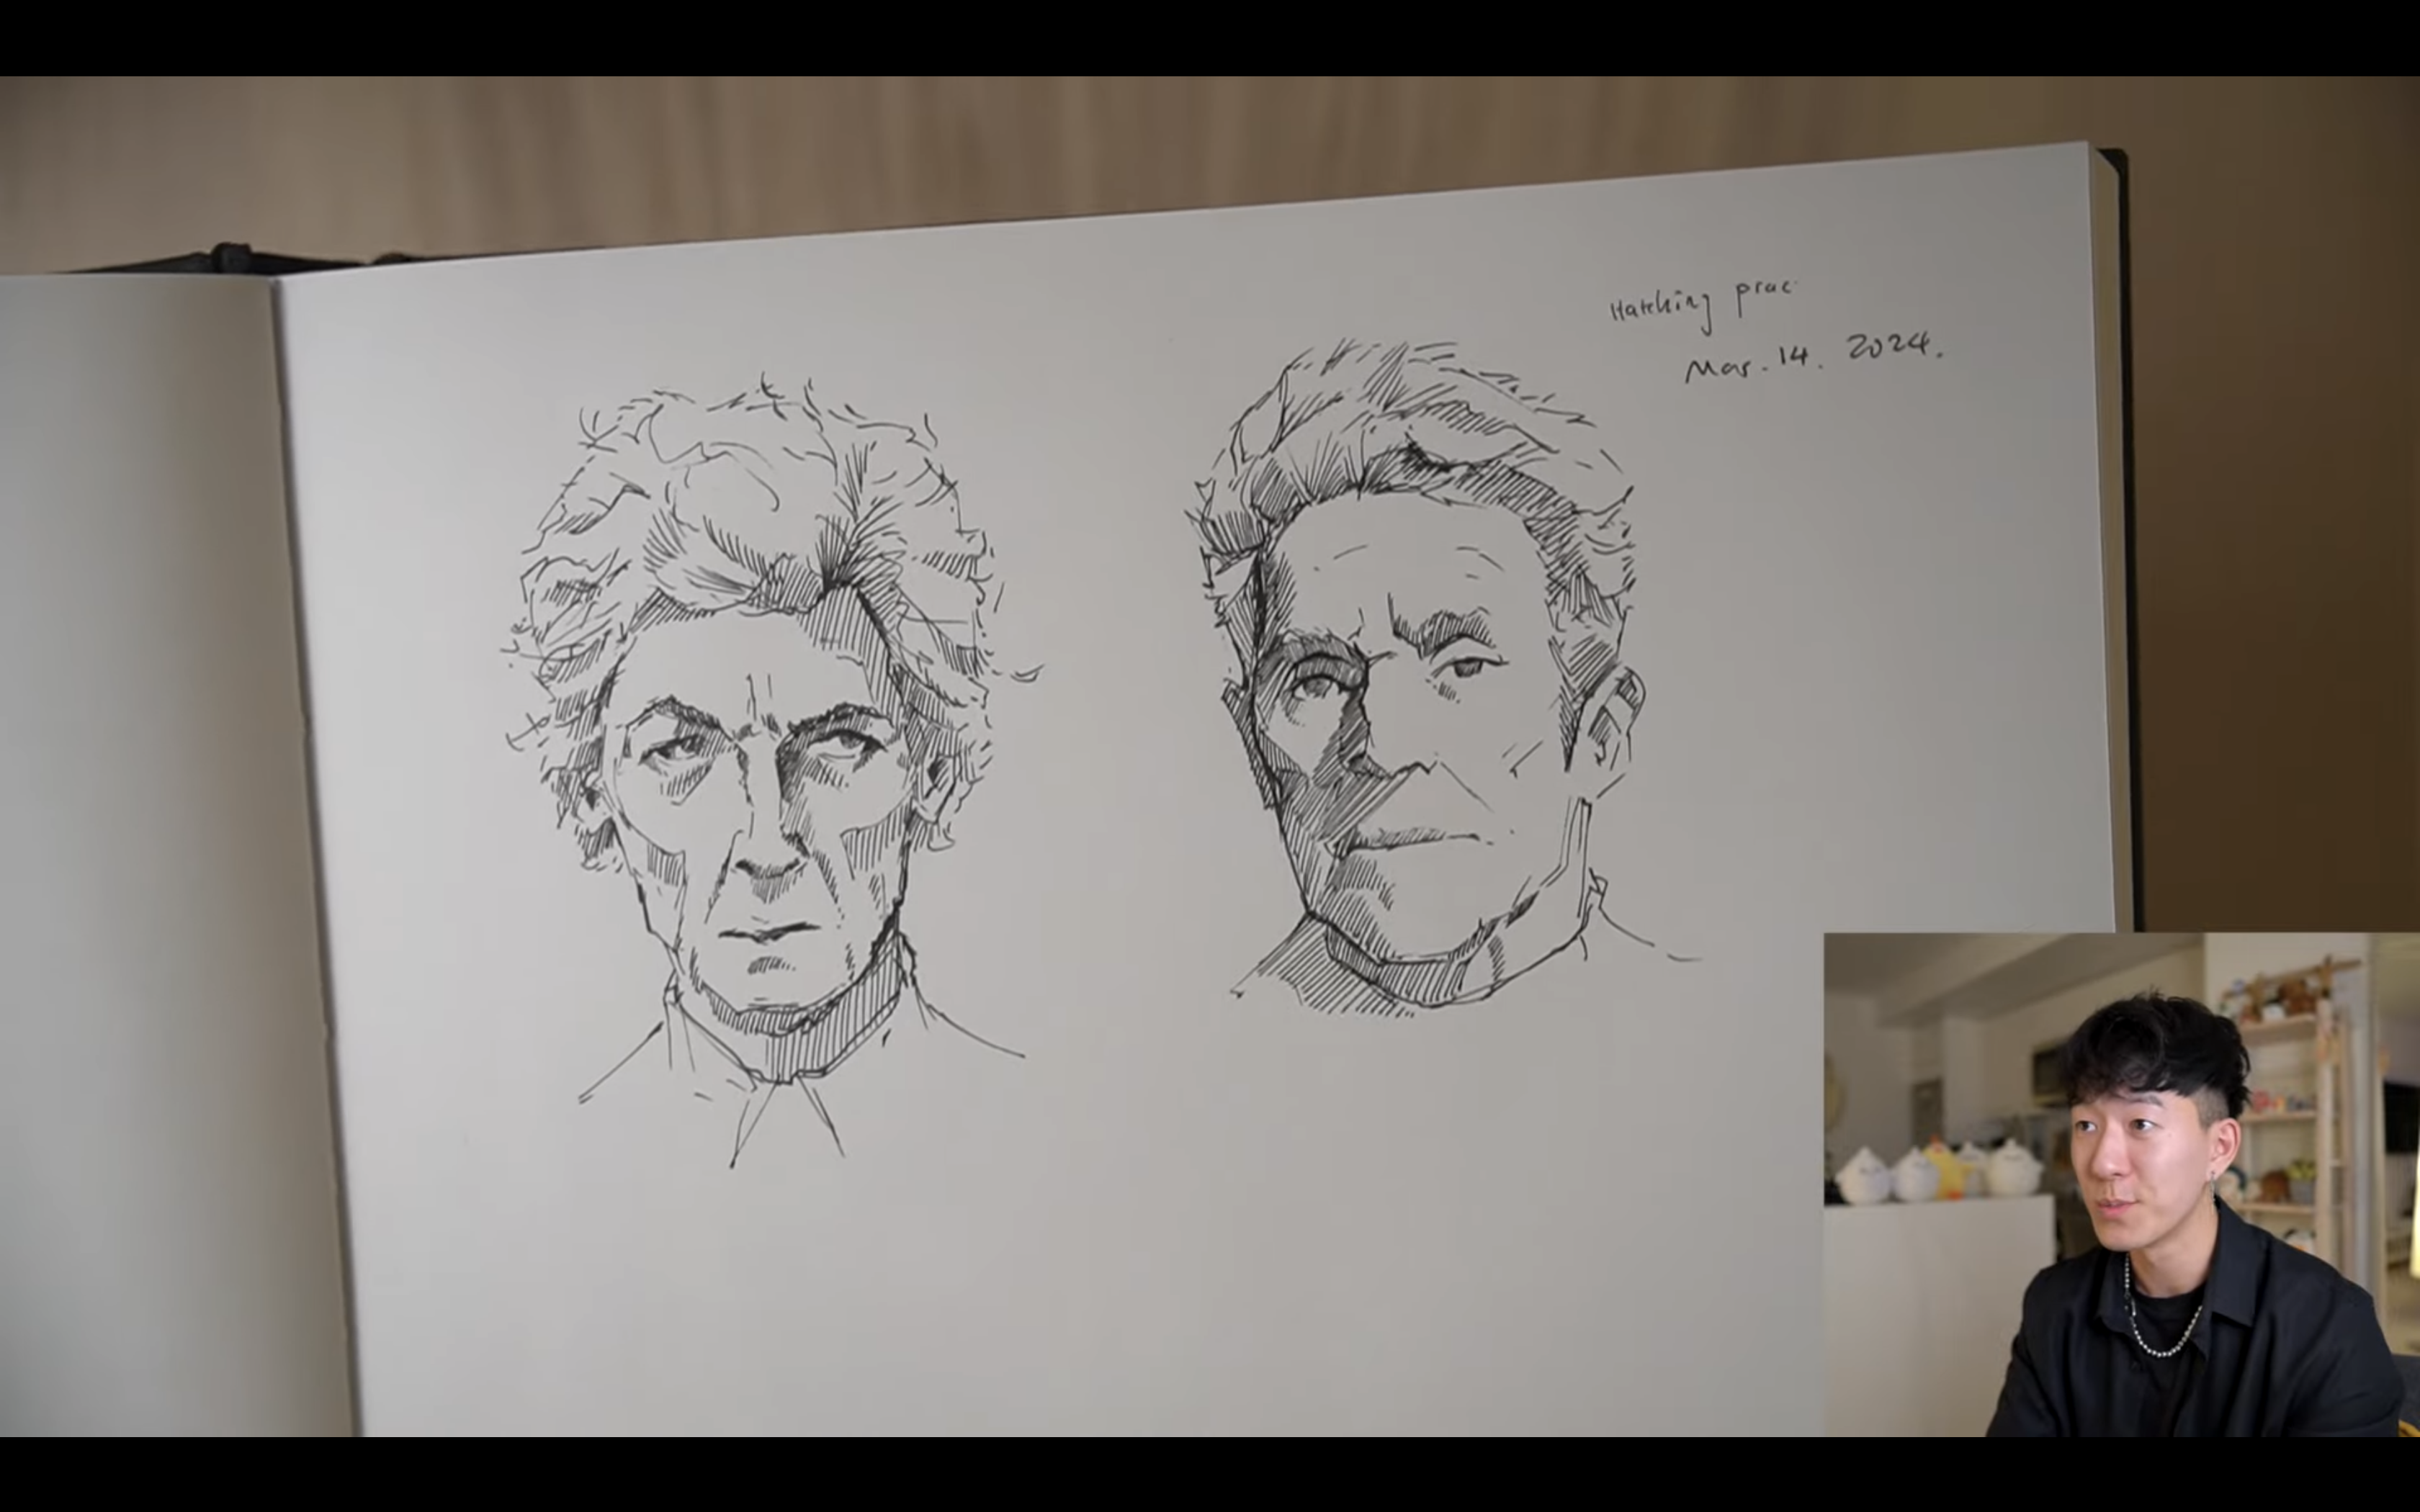 Hatching prac.
Mar. 14. 2024.